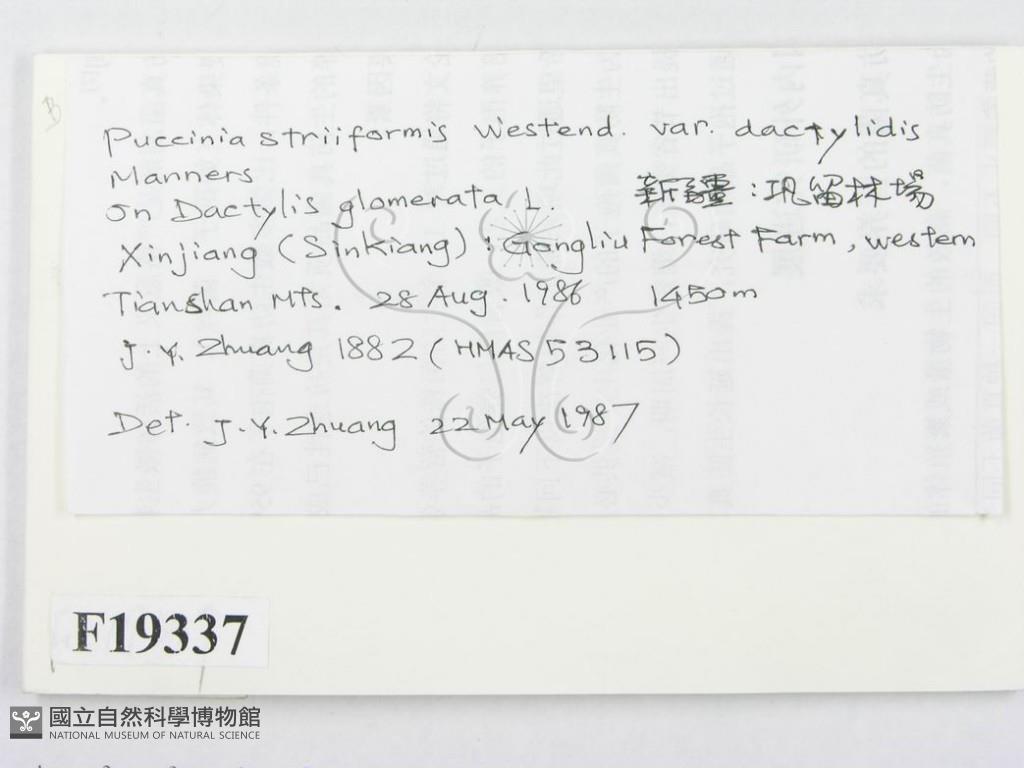 B
Puccinia striiformis Westend. var. dactylidis
Manners
on Dactylis glomerata L. 新疆:巩留林場
Xinjiang (Sinkiang): Gongliu Forest Farm, western
Tianshan Mts. 28 Aug. 1986 1450m
J.Y. Zhuang 1882 (HMAS 53115)
Det. J.Y. Zhuang 22 May 1987
F19337
國立自然科學博物館
NATIONAL MUSEUM OF NATURAL SCIENCE